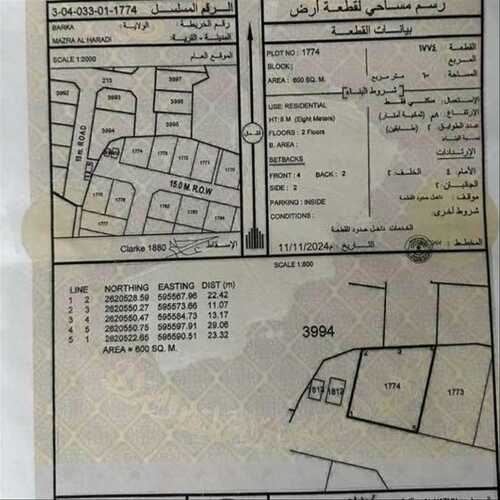 رسم مساحي لقطعة أرض
الرقم المسلسل 3-04-033-01-1774
بيانات القطعة
رقم الخريطة
BARKA
الولاية:
MAZRA AL HARADI
المدينة - القرية:
SCALE 1:2000
الموقع العام
PLOT NO : 1774
القطعة ١٧٧٤
BLOCK:
المربع
AREA : 600 SQ. M.
المساحة ٦٠ متر مربع
شروط البناء
USE: RESIDENTIAL
الإستعمال: سكني فقط
HT: 8 M (Eight Meters)
FLOORS : 2 Floors
عدد الطوابق: ٢ (طابقين)
B. AREA :
SETBACKS
الإرتدادات
FRONT : 4 BACK : 2
الأمام: ٤ الخلف: ٢
SIDE : 2
الجانبان: ٢
PARKING : INSIDE
موقف: داخل حدود القطعة
CONDITIONS :
شروط أخرى:
الخدمات داخل حدود القطعة
11/11/2024م التاريخ:
المخطط:
Clarke 1880
الإسقاط
2215
3997
3993
3996
3994
3995
18 m. ROAD
1774
1773
1772
1771
1770
15.0 M. R.O.W
SCALE 1:600
LINE NORTHING EASTING DIST (m)
1 2 2620528.59 595567.96 22.42
2 3 2620550.27 595573.66 11.07
3 4 2620550.47 595584.73 13.17
4 5 2620550.75 595597.91 29.06
5 1 2620522.65 595590.51 23.32
AREA = 600 SQ. M.
3994
2 3
1774
1773
1812